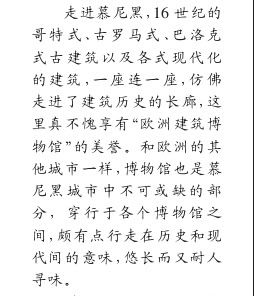 走进慕尼黑,16 世纪的
哥特式、古罗马式、巴洛克
式古建筑以及各式现代化
的建筑,一座连一座,仿佛
走进了建筑历史的长廊,这
里真不愧享有“欧洲建筑博
物馆”的美誉。和欧洲的其
他城市一样,博物馆也是慕
尼黑城市中不可或缺的部
分， 穿行于各个博物馆之
间,颇有点行走在历史和现
代间的意味,悠长而又耐人
寻味。